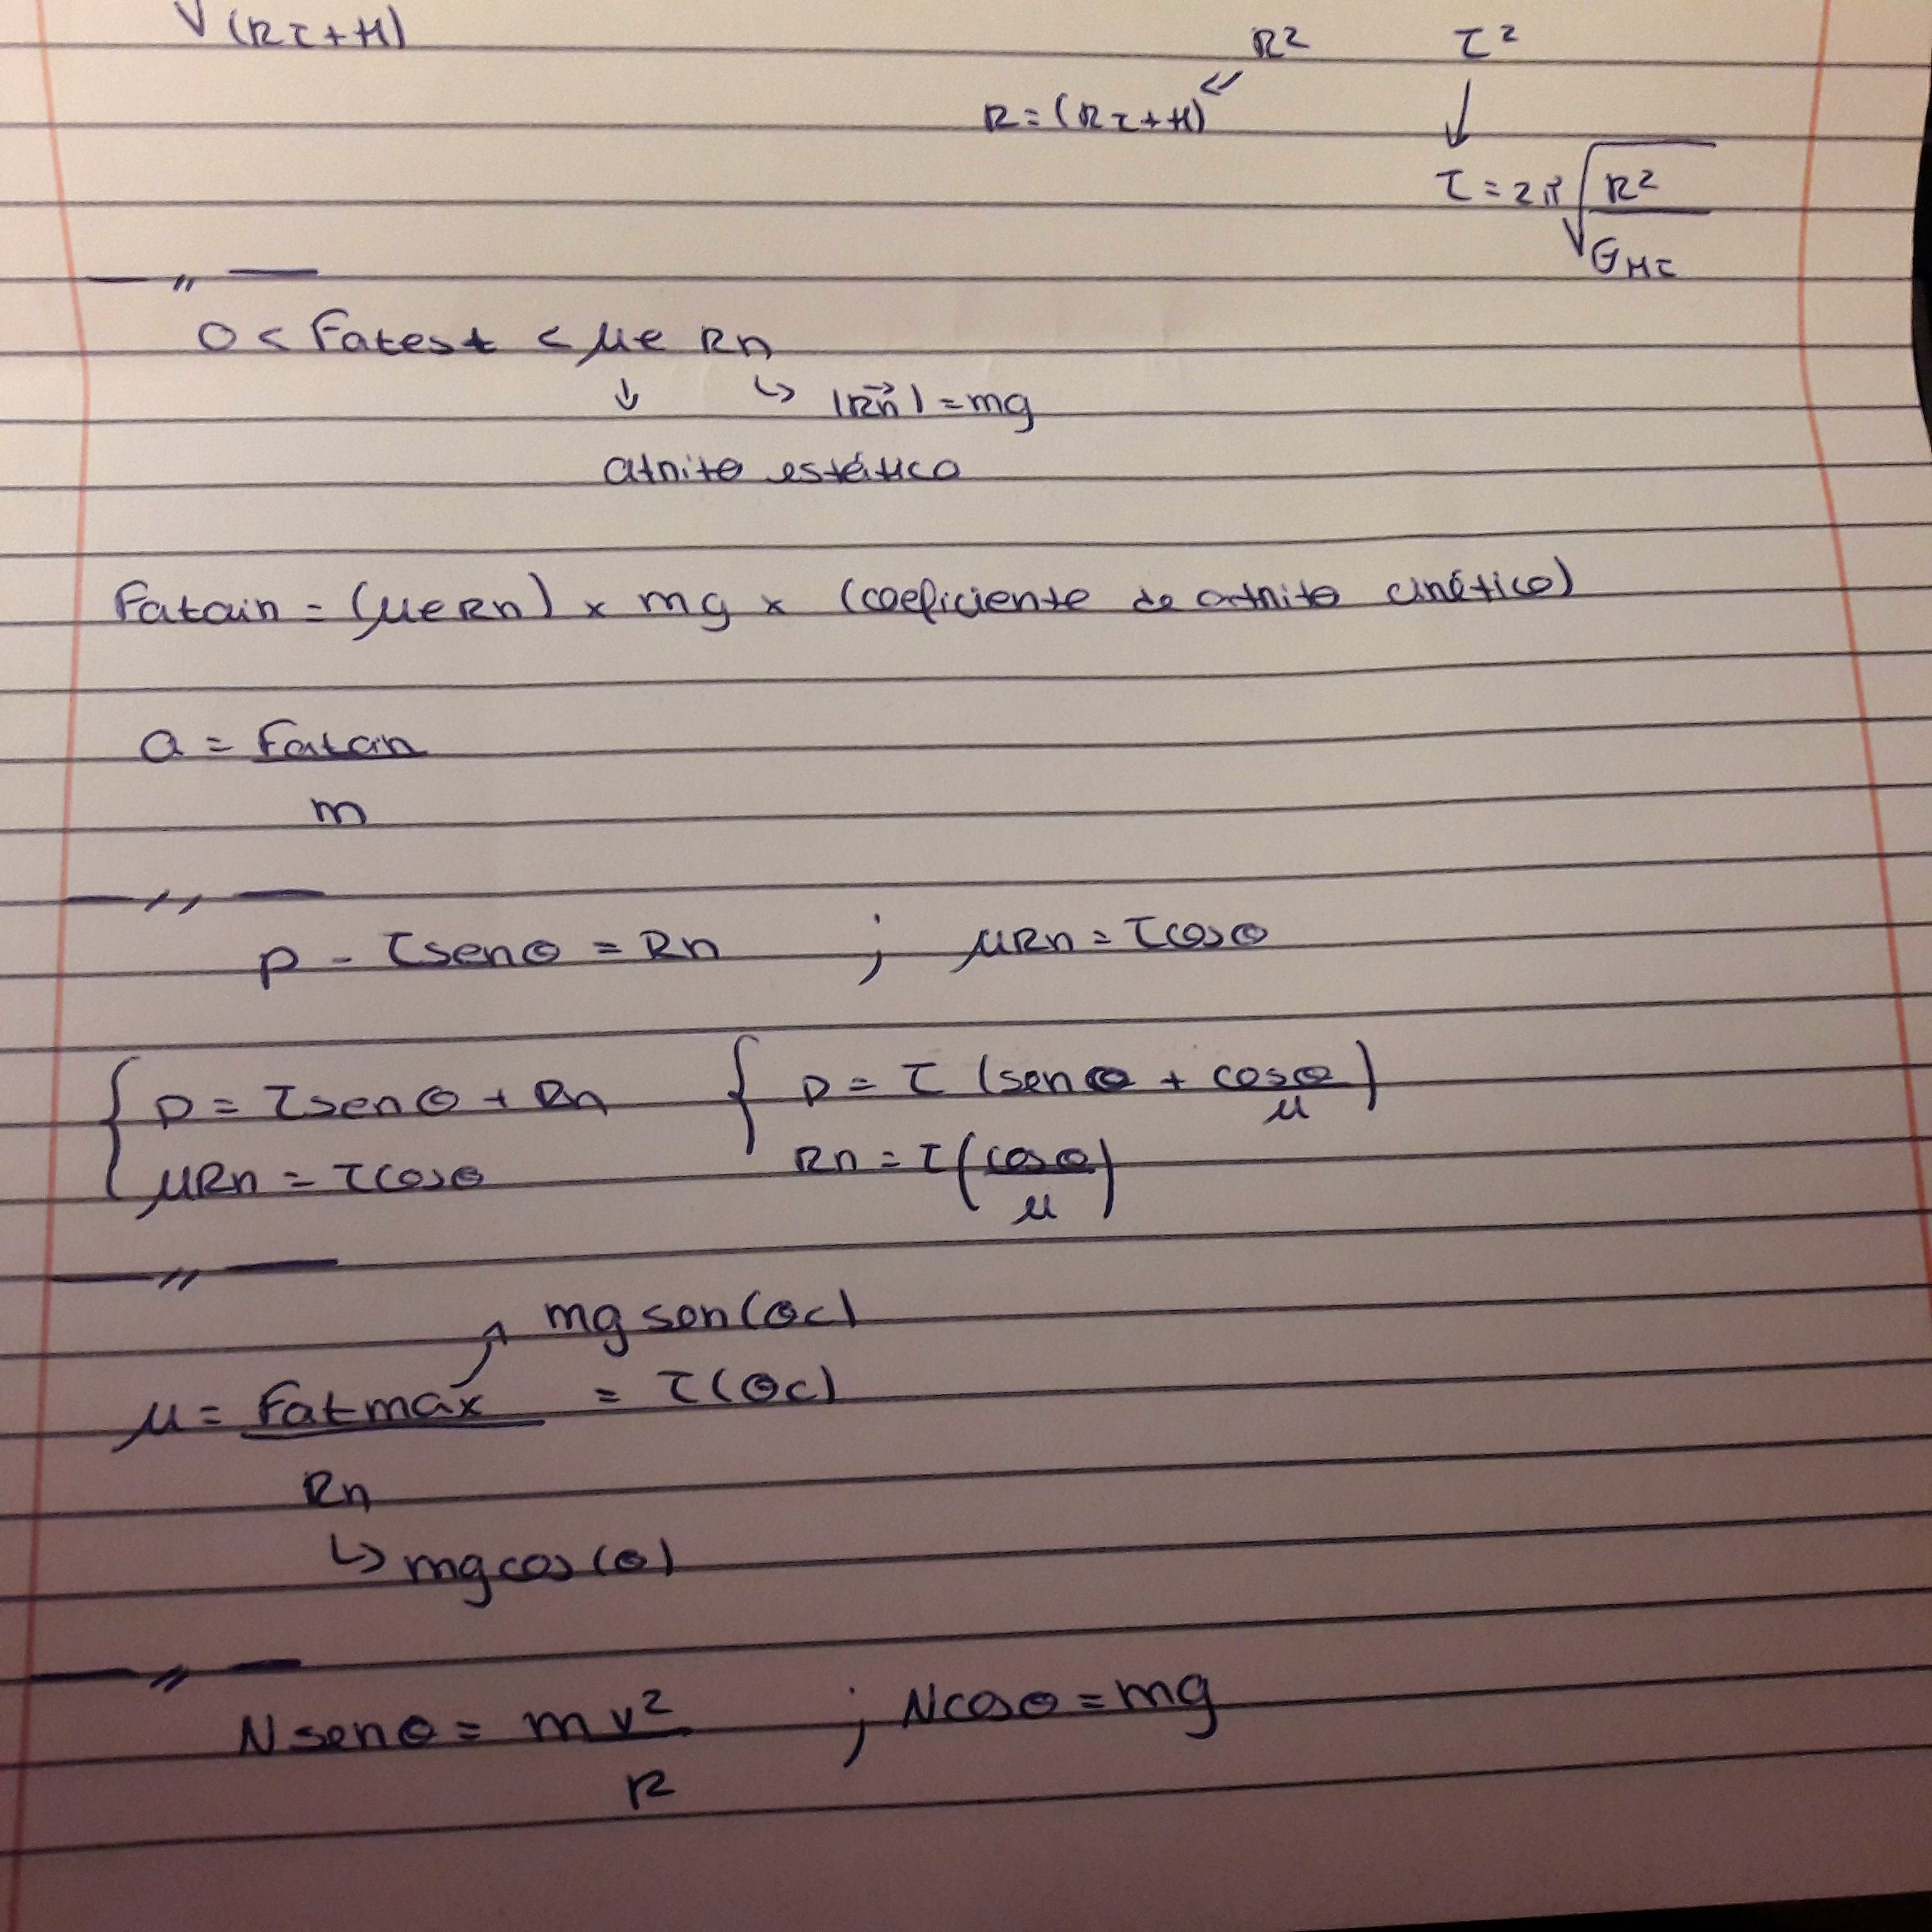 √(Rτ+H)
R² τ²
R=(Rτ+H)
↓
τ=2π√(R²/GMτ)
0 < Fatest < μe Rn
↓ ↳ |Rn| = mg
atrito estático
Fatcin = (μeRn) x mg x (coeficiente de atrito cinético)
a = Fatcin
m
P - τsenθ = Rn ; μRn = τcosθ
{ P = τsenθ + Rn { P = τ (senθ + cosθ/μ)
μRn = τcosθ Rn = τ(cosθ/μ)
mg sen(θc)
μ = Fatmax = τ(θc)
Rn
↳ mgcos(θ)
Nsenθ = mv² ; Ncosθ = mg
R